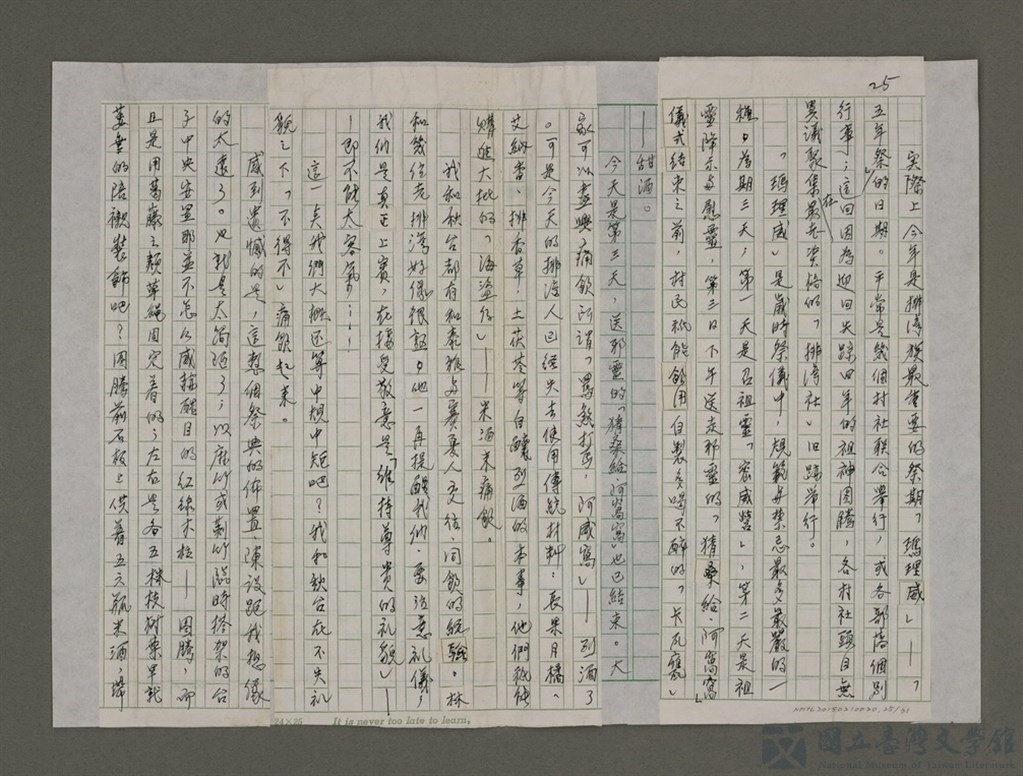 25
實際上今年是排湾族最重要的祭期「瑪理威」——「
五年祭」的日期。平常是幾個村社联合举行,或各部落個別
行事;這回因為迎回失踪四年的祖神図騰,各村社頭目無
異議聚集在最老资格的「排湾社」旧蹟举行。
「瑪理威」是歲時祭儀中,規範與禁忌最多最嚴的一
種。為期三天,第一天是召祖靈「
靈降示与慰靈,第三日下午送走邪靈的「猜桑給·阿窩窩」
儀式結束之前,村民祇能飲用自製多喝不醉的「卡瓦寬」
——甜酒。
今天是第三天,送邪靈的「猜桑給·阿窩窩」也已結束。大
家可以盡興痛飲所謂「 阿威寫」——烈酒了
。可是今天的排湾人已經失去使用傳統材料:長果月橘、
艾納香、排香草、土茯苓等自釀烈酒的本事,他們祇能
購進大批的「海盜仔」——米酒來痛飲。
我和秋台都有和泰雅与賽夏人交往、同飲的經驗。林
和幾位老排湾好像很熟。他一再提醒我們,要注意礼儀,
我們是真正上賓,在接受敬意是「維持尊貴的礼貌」——
——即不能太客氣……
這一点我們大概还算中規中矩吧?我和秋台在不失礼
貌之下「不得不」痛飲起來。
感到遺憾的是,這整個祭典的佈置、陳設距我想像
的太遠了。也就是太簡陋了;以麻竹或莿竹臨時搭架的台
子中央安置那並不怎么威赫醒目的紅綠木柱——図騰,而
且是用葛藤之類草繩固定着的;左右是各五株枝樹葉早就
萎垂的陪襯裝飾吧?図騰前石板上供着五六瓶米酒,幣
24×25 It is never too late to learn.
NMTL20150210020, 25/31
國立臺灣文學館
National Museum of Taiwan Literature